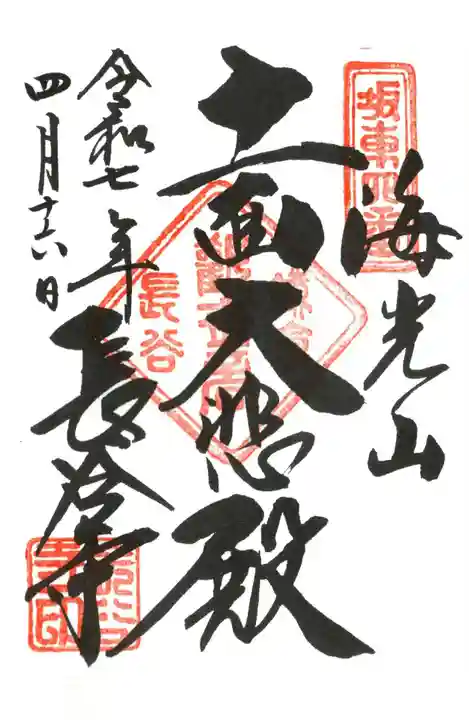 坂東四番
海光山
十一面大悲殿
長谷
長谷寺
令和七年
四月十六日